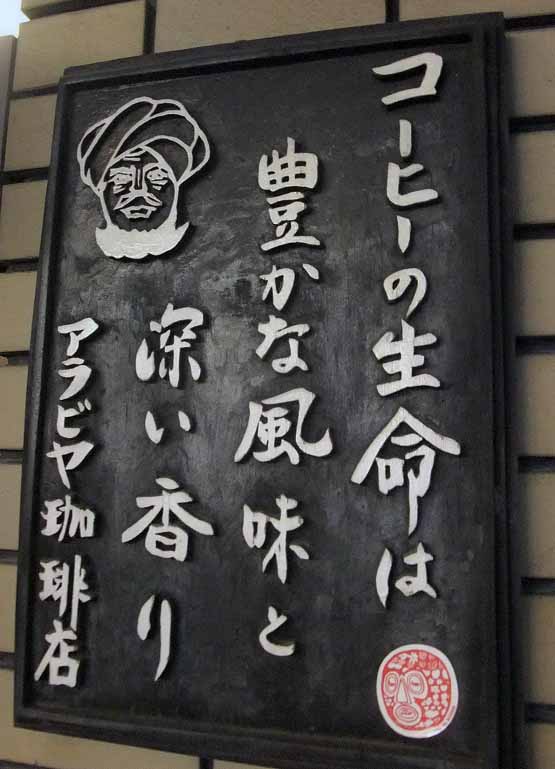 コーヒーの生命は
豊かな風味と
深い香り
アラビヤ珈琲店